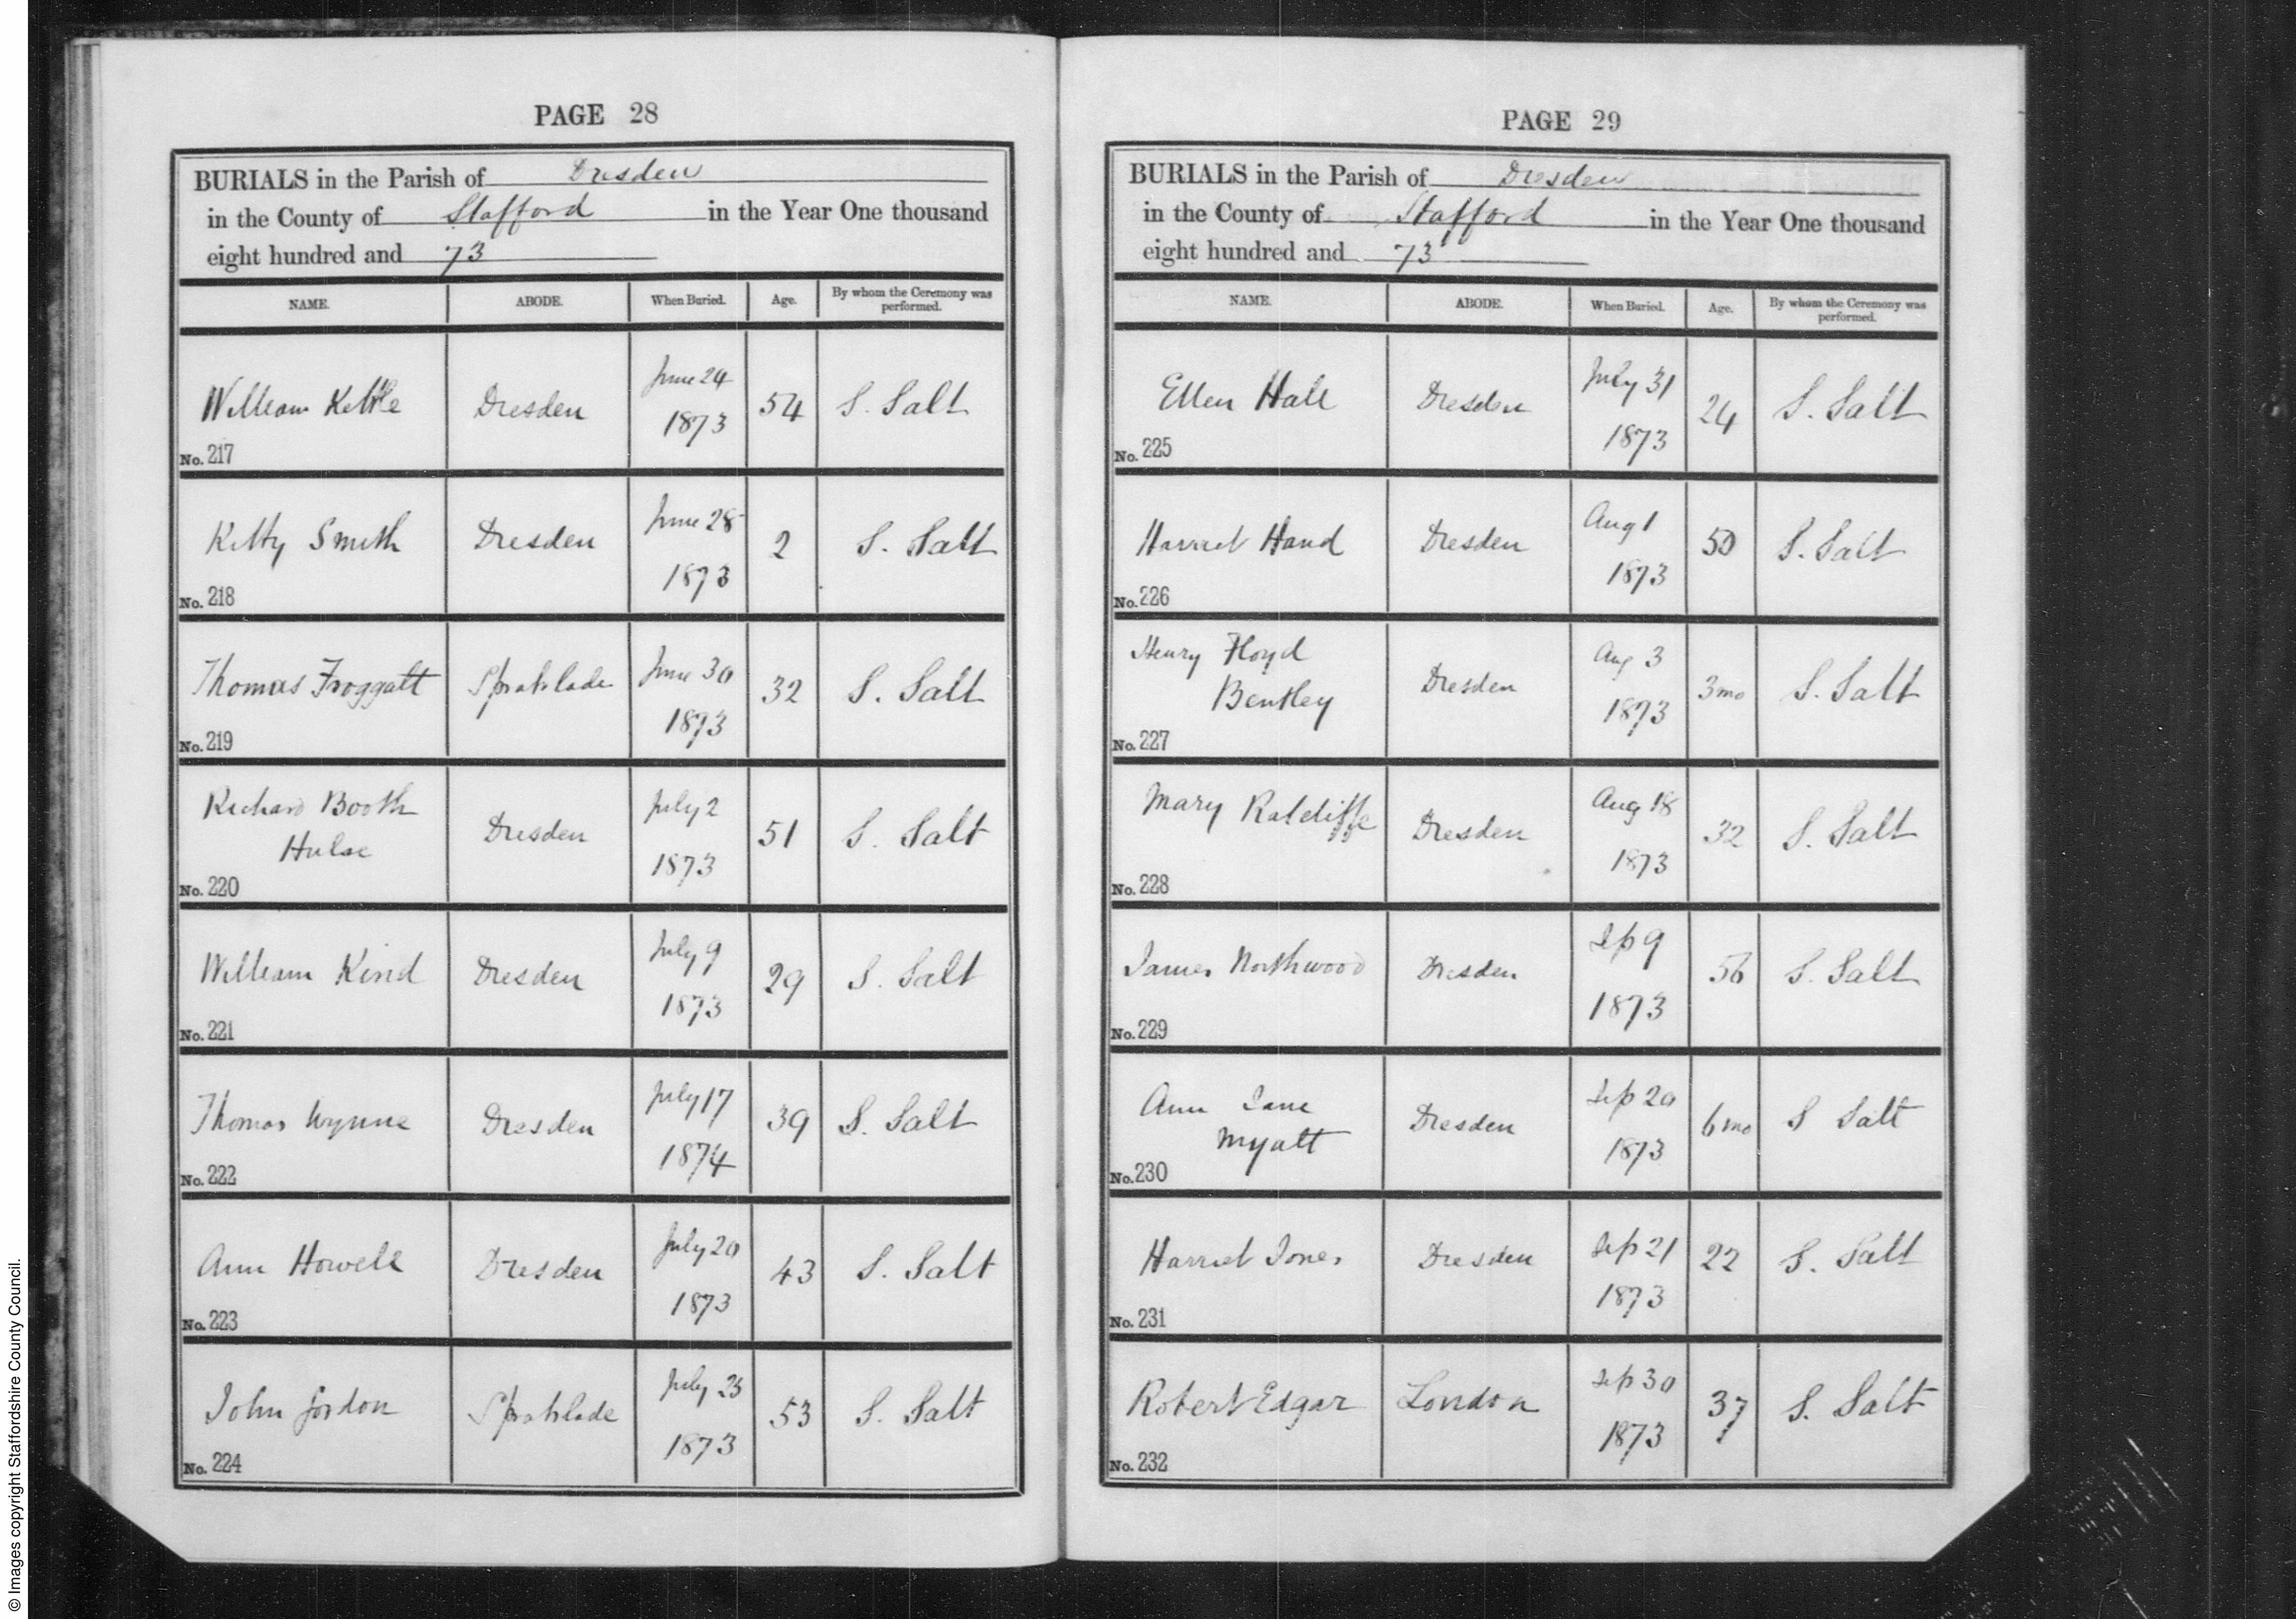 PAGE 28
BURIALS in the Parish of Dresden
in the County of Stafford in the Year One thousand
eight hundred and 73
NAME. ABODE. When Buried. Age. By whom the Ceremony was performed.
William Kettle Dresden June 24 1873 54 S. Salt
No. 217
Kitty Smith Dresden June 28 1873 2 S. Salt
No. 218
Thomas Froggatt Spratslade June 30 1873 32 S. Salt
No. 219
Richard Booth
Hulse Dresden July 2 1873 51 S. Salt
No. 220
William Kind Dresden July 9 1873 29 S. Salt
No. 221
Thomas Wynne Dresden July 17 1874 39 S. Salt
No. 222
Ann Howell Dresden July 20 1873 43 S. Salt
No. 223
John Gordon Spratslade July 1873 53 S. Salt
No. 224
PAGE 29
BURIALS in the Parish of Dresden
in the County of Stafford in the Year One thousand
eight hundred and 73
NAME. ABODE. When Buried. Age. By whom the Ceremony was performed.
Ellen Hall Dresden July 31 1873 24 S. Salt
No. 225
Harriet Hand Dresden Aug 1 1873 50 S. Salt
No. 226
Henry Floyd
Bentley Dresden Aug 3 1873 3 mo S. Salt
No. 227
Mary Ratcliffe Dresden Aug 18 1873 32 S. Salt
No. 228
James Northwood Dresden Sep 9 1873 56 S. Salt
No. 229
Ann Jane
Myatt Dresden Sep 20 1873 6 mo S Salt
No. 230
Harriet Jones Dresden Sep 21 1873 22 S. Salt
No. 231
Robert Edgar London Sep 30 1873 37 S. Salt
No. 232
© Images copyright Staffordshire County Council.